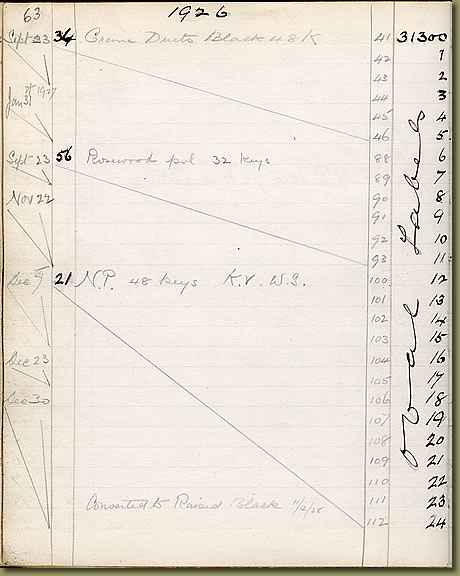 63 1926
Sept 23 34 Crane Duets Black 48 K 41 31300
42 1
43 2
Jan 31st 1927 44 3
45 4
46 5
Sept 23 56 Rosewood pol 32 keys 88 6
89 7
Nov 22 90 8
91 9
92 10
93 11
Dec 9 21 N.P. 48 keys K.V. W.S. 100 12
101 13
102 14
103 15
Dec 23 104 16
105 17
Dec 30 106 18
107 19
108 20
109 21
110 22
Converted to Raised Black 11/2/28 111 23
112 24
Oval Labels